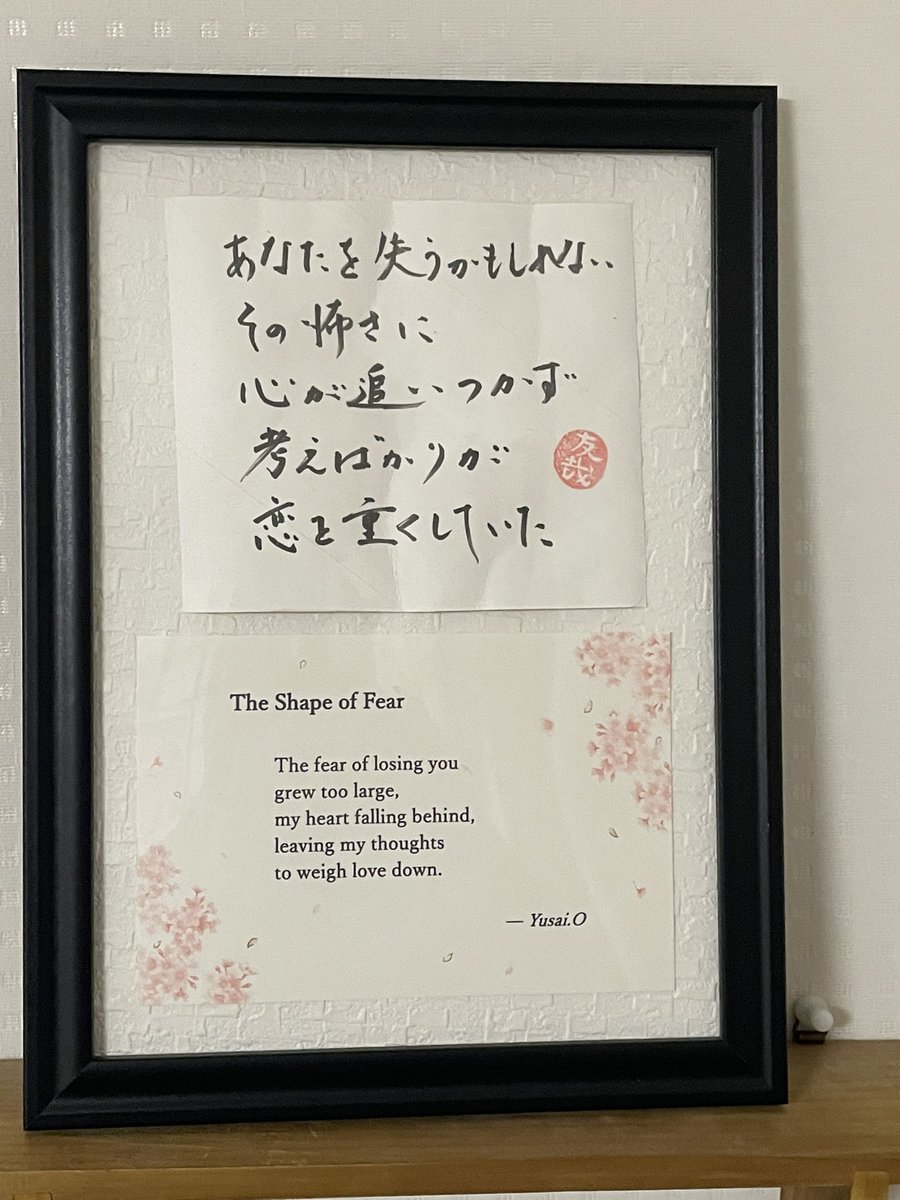 あなたを失うかもしれない
その怖さに
心が追いつかず
考えばかりが
恋を重くしていた
友哉
The Shape of Fear
The fear of losing you
grew too large,
my heart falling behind,
leaving my thoughts
to weigh love down.
— Yusai.O